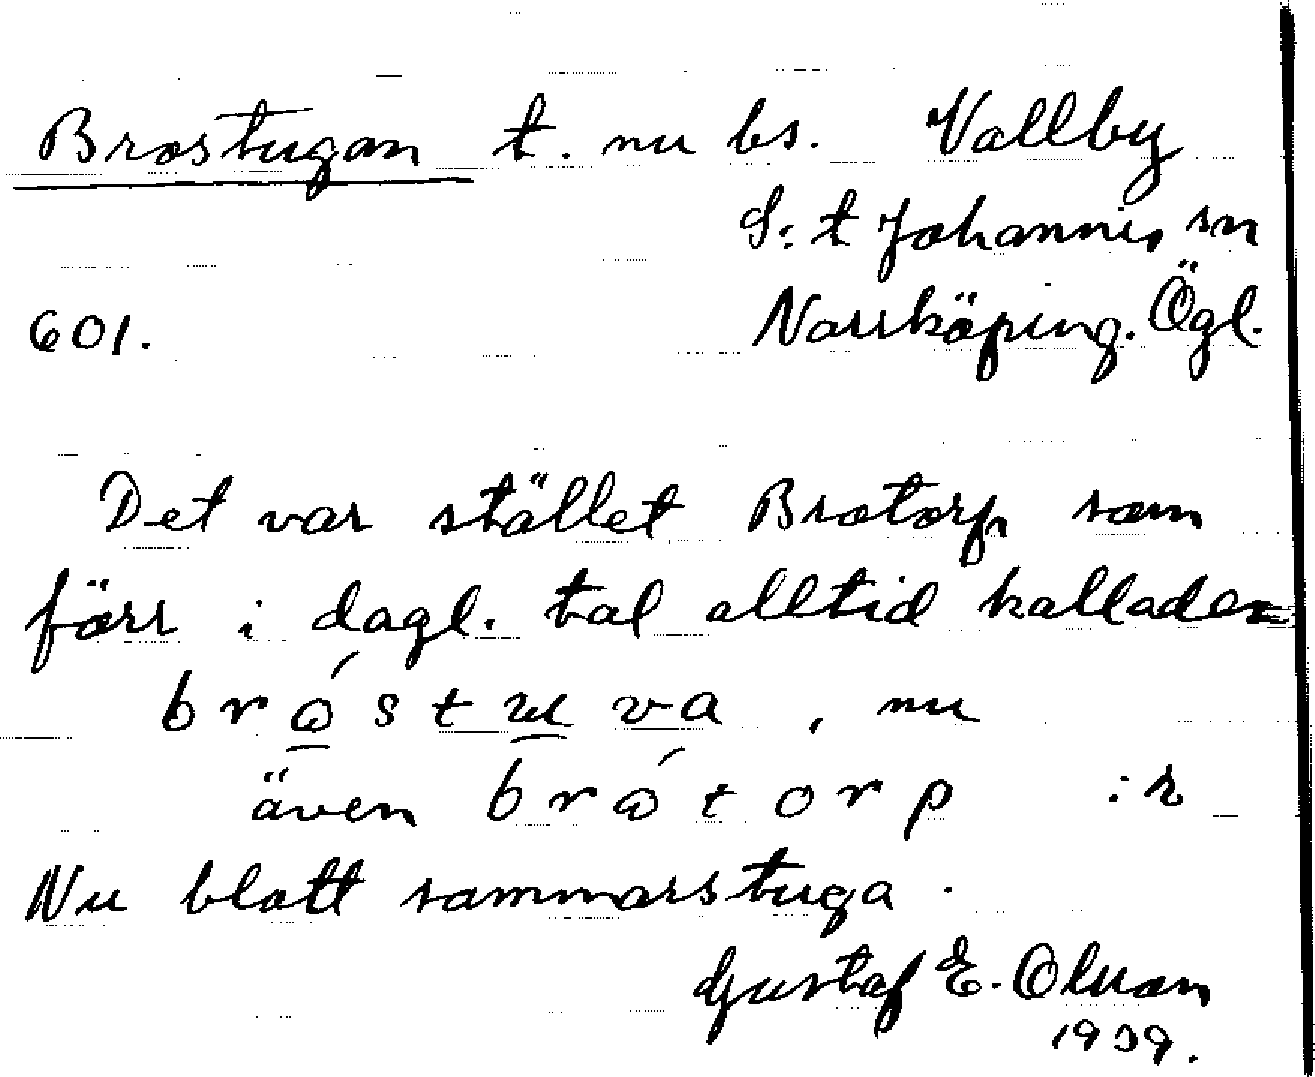 Brostugan t. nu bs. Vallby
S:t Johannis sn
601. Norrköping. Ögl.
Det var stället Brotorp som
förr i dagl. tal alltid kallades
brǻstuva, nu
även brǻtorp :r
Nu blott sommarstuga.
Gustaf E. Olsson
1939.